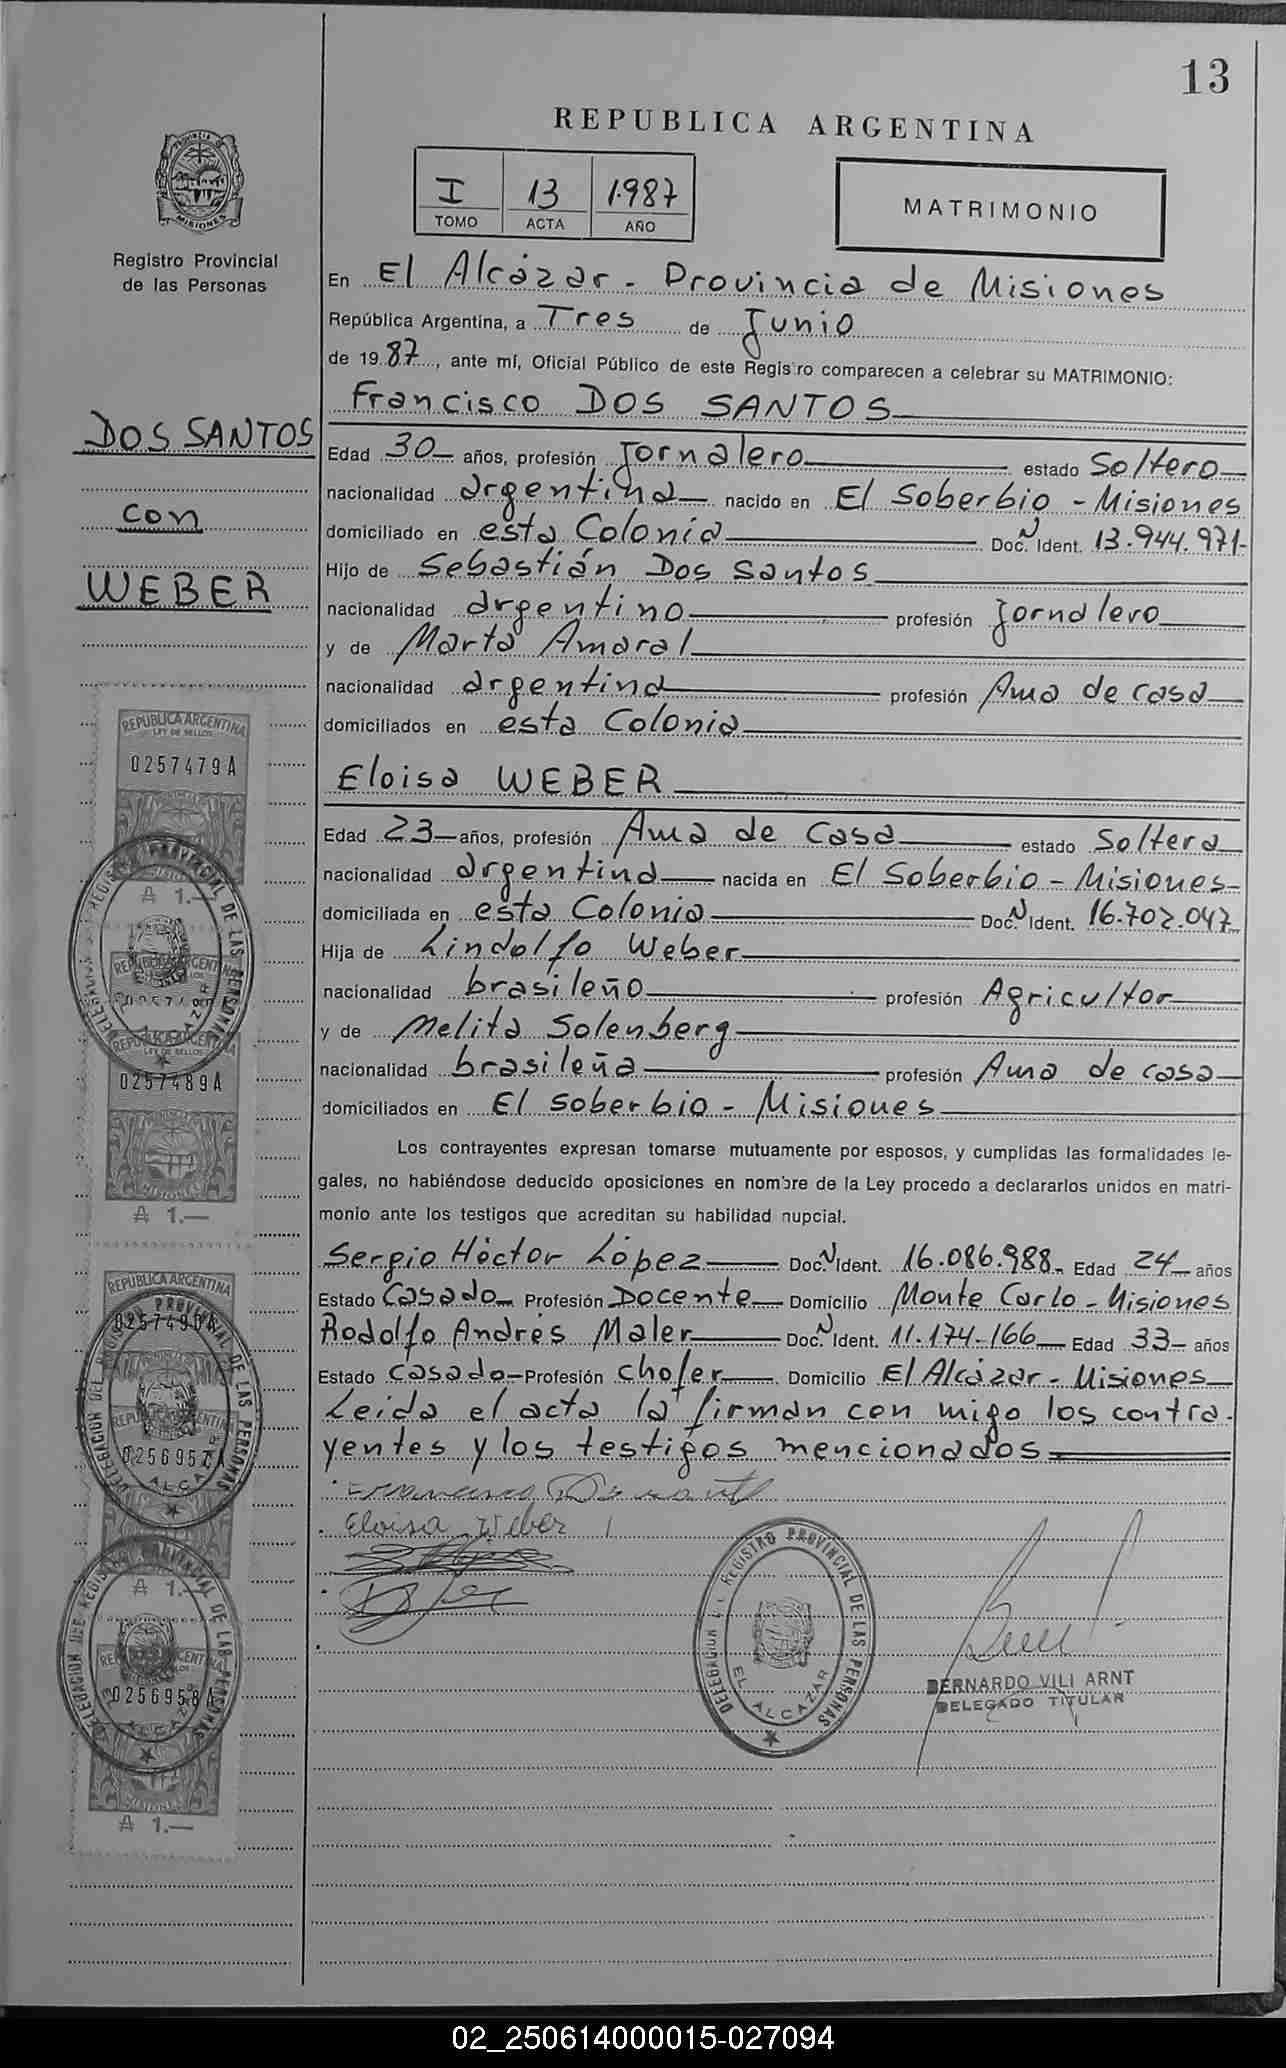 13
REPUBLICA ARGENTINA
I 13 1.987
TOMO ACTA AÑO
MATRIMONIO
PROVINCIA DE
MISIONES
Registro Provincial
de las Personas
En El Alcázar - Provincia de Misiones
República Argentina, a Tres de Junio
de 19 87, ante mí, Oficial Público de este Registro comparecen a celebrar su MATRIMONIO:
Francisco DOS SANTOS
DOS SANTOS
con
WEBER
Edad 30 años, profesión Jornalero estado Soltero
nacionalidad argentina nacido en El Soberbio - Misiones
domiciliado en esta Colonia Doc. N Ident. 13.944.971-
Hijo de Sebastián Dos Santos
nacionalidad argentino profesión Jornalero
y de Marta Amaral
nacionalidad argentina profesión Ama de casa
domiciliados en esta Colonia
Eloisa WEBER
Edad 23 años, profesión Ama de Casa estado Soltera
nacionalidad argentina nacida en El Soberbio - Misiones-
domiciliada en esta Colonia Doc. N Ident. 16.702.047
Hija de Lindolfo Weber
nacionalidad brasileño profesión Agricultor
y de Melita Solenberg
nacionalidad brasileña profesión Ama de casa
domiciliados en El Soberbio - Misiones
Los contrayentes expresan tomarse mutuamente por esposos, y cumplidas las formalidades le-
gales, no habiéndose deducido oposiciones en nombre de la Ley procedo a declararlos unidos en matri-
monio ante los testigos que acreditan su habilidad nupcial.
Sergio Héctor López Doc. N Ident. 16.086.988 Edad 24 años
Estado Casado Profesión Docente Domicilio Monte Carlo - Misiones
Rodolfo Andrés Maler Doc. N Ident. 11.174.166 Edad 33 años
Estado Casado Profesión Chofer Domicilio El Alcázar - Misiones
Leida el acta la firman con migo los contra-
yentes y los testigos mencionados
Eloisa Weber
DELEGACION DEL REGISTRO PROVINCIAL DE LAS PERSONAS
EL ALCAZAR
BERNARDO VILI ARNT
DELEGADO TITULAR
REPUBLICA ARGENTINA
LEY DE SELLOS
0257479A
A 1.—
REPUBLICA ARGENTINA
LEY DE SELLOS
0257489A
MISIONES
A 1.—
DELEGACION DEL REGISTRO PROVINCIAL DE LAS PERSONAS
REPUBLICA ARGENTINA
0257490A
0256957A
DELEGACION DEL REGISTRO PROVINCIAL DE LAS PERSONAS
EL ALCAZAR
A 1.—
0256958A
DELEGACION DEL REGISTRO PROVINCIAL DE LAS PERSONAS
EL ALCAZAR
MISIONES
A 1.—
02_250614000015-027094